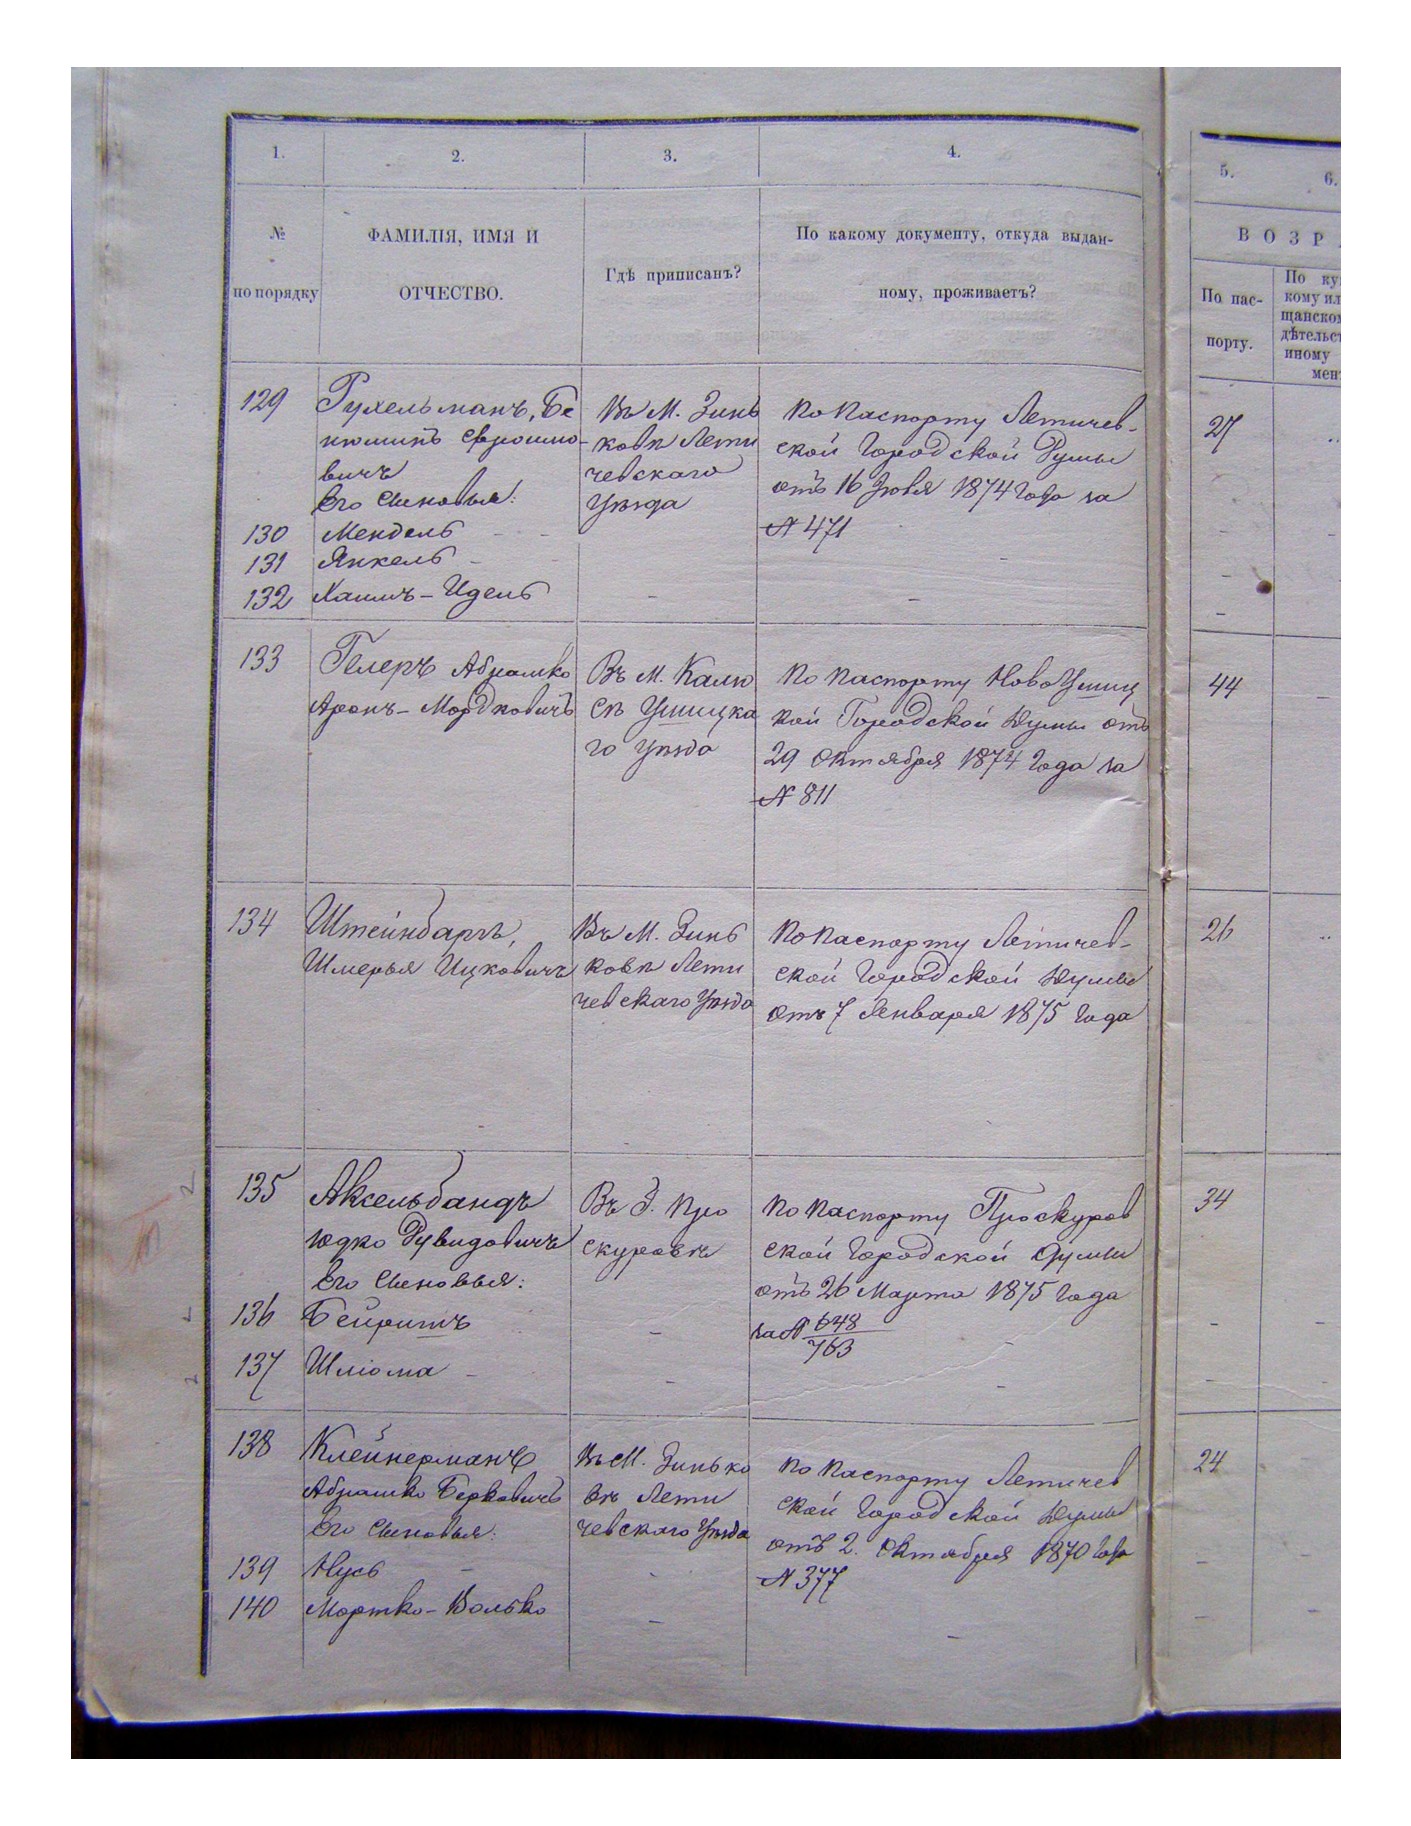 1.
2.
3.
4.
5.
6.
№
по порядку
ФАМИЛІЯ, ИМЯ И
ОТЧЕСТВО.
Гдѣ приписанъ?
По какому документу, откуда выдан-
ному, проживаетъ?
ВОЗРА
По пас-
порту.
По ку
кому ил
щанском
дѣтельст
иному
мен
129
Рухельманъ, Бе
нюминъ Фроимо-
вичъ
Его сыновья:
Въ М. Зинь
ковѣ Лети
чевскаго
Уѣзда
По Паспорту Летичев-
ской Городской Думы
отъ 16 Іюля 1874 года за
№ 471
27
130 Мендель - -
131 Янкель -
132 Хаимъ-Идель
133
Гелеръ Абрамко
Аронъ-Мордковичъ
Въ М. Калю
сѣ Ушицка
го Уѣзда
По Паспорту НовоУшиц
кой Городской Думы отъ
29 Октября 1874 года за
№ 811
44
134
Штейнбаргъ,
Шмерья Ицковичъ
Въ М. Зинь
ковѣ Лети
чевскаго Уѣзда
По Паспорту Летичев-
ской Городской Думы
отъ 7 Января 1875 года
26
135
Аксельбандъ
Юдко Рувидовичъ
Его сыновья:
Въ Г. Про
скуровѣ
По Паспорту Проскуров
ской Городской Думы
отъ 26 Марта 1875 года
за № 648
763
34
136 Бейритъ
137 Шліома -
138
Клейнерманъ
Абрамко Берковичъ
Его сыновья:
Въ М. Зинько
вѣ Лети
чевскаго Уѣзда
По Паспорту Летичев
ской Городской Думы
отъ 2. Октября 1870 года
№ 377
24
139 Нусь
140 Мортко-Волько